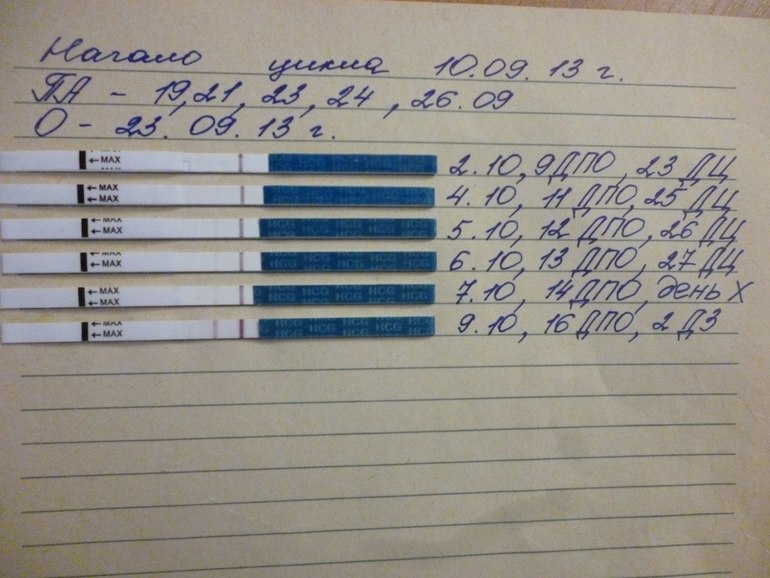 Начало цикла 10.09.13 г.
ПА - 19, 21, 23, 24, 26.09
О - 23.09.13 г.
←MAX HCG HCG HCG HCG 2.10, 9 ДПО, 23 ДЦ
←MAX ←MAX HCG HCG HCG HCG 4.10, 11 ДПО, 25 ДЦ
MAX ←MAX HCG HCG HCG HCG 5.10, 12 ДПО, 26 ДЦ
MAX ←MAX HCG HCG HCG HCG 6.10, 13 ДПО, 27 ДЦ
←MAX ←MAX HCG HCG HCG HCG 7.10, 14 ДПО, день X
←MAX ←MAX HCG HCG HCG HCG 9.10, 16 ДПО, 2 ДЗ